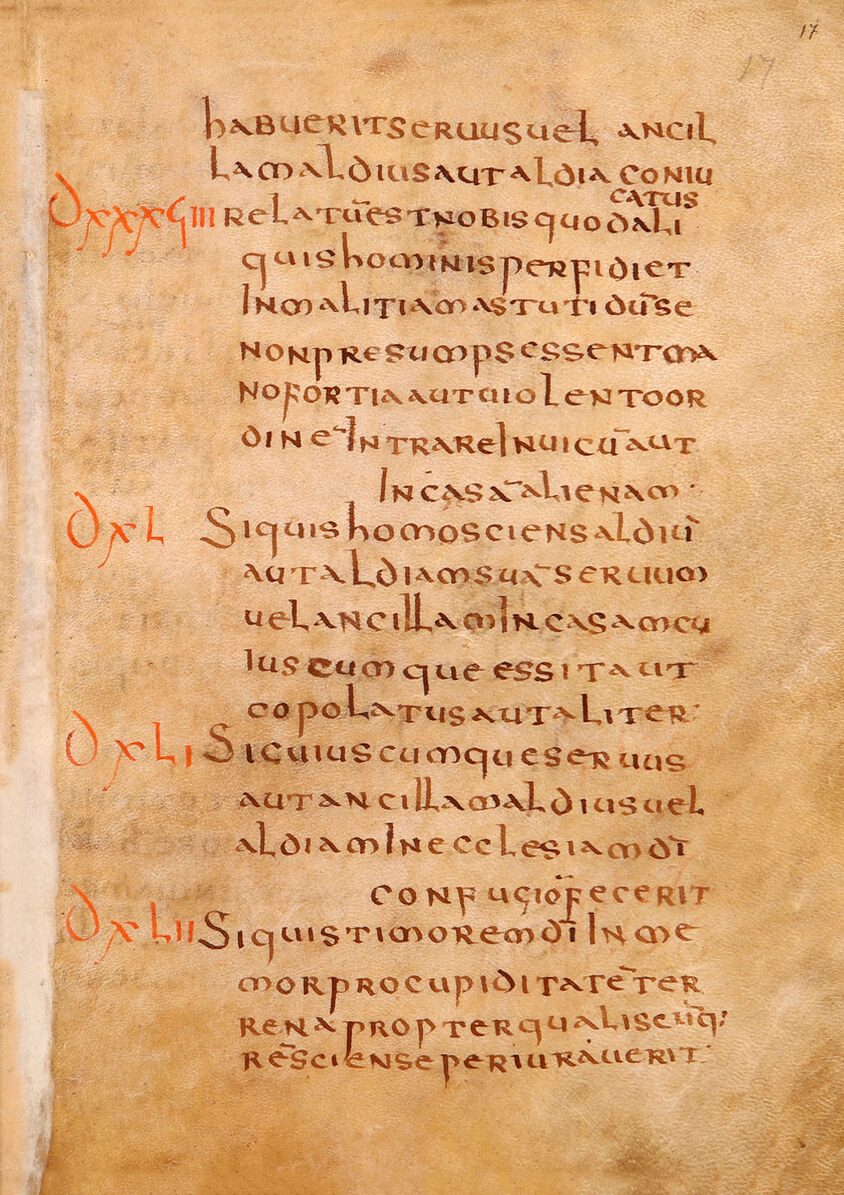 17
17
habuerit seruus uel ancil
lam aldius aut aldia coniu
catus
Dxxxviiii relatū est nobis quod ali
quis homini sperfidi et
In malitiam astuti dū se
non presumpsessent ma
no fortia aut uiolento or
dinē Intrare In uicū aut
In casā alienam·
Dxl Si quis homo sciens aldiū
aut aldiam suā seruum
uel ancillam In casam cu
Ius cumque essit aut
copolatus aut aliter·
Dxli Si cuius cumque seruus
aut ancillam aldius uel
aldiam In ecclesiam dī
confugiō fecerit
Dxlii Si quis timorem dī In me
mor pro cupiditatē ter
rena propter qualiscūq;
rē sciens eperiurauerit·